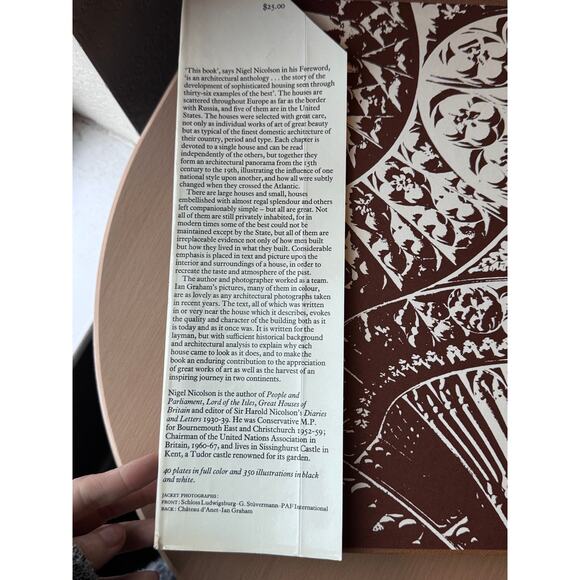 $25.00
'This book', says Nigel Nicolson in his Foreword,
'is an architectural anthology . . . the story of the
development of sophisticated housing seen through
thirty-six examples of the best'. The houses are
scattered throughout Europe as far as the border
with Russia, and five of them are in the United
States. The houses were selected with great care,
not only as individual works of art of great beauty
but as typical of the finest domestic architecture of
their country, period and type. Each chapter is
devoted to a single house and can be read
independently of the others, but together they
form an architectural panorama from the 15th
century to the 19th, illustrating the influence of one
national style upon another, and how all were subtly
changed when they crossed the Atlantic.
There are large houses and small, houses
embellished with almost regal splendour and others
left companionably simple – but all are great. Not
all of them are still privately inhabited, for in
modern times some of the best could not be
maintained except by the State, but all of them are
irreplaceable evidence not only of how men built
but how they lived in what they built. Considerable
emphasis is placed in text and picture upon the
interior and surroundings of a house, in order to
recreate the taste and atmosphere of the past.
The author and photographer worked as a team.
Ian Graham's pictures, many of them in colour,
are as lovely as any architectural photographs taken
in recent years. The text, all of which was written
in or very near the house which it describes, evokes
the quality and character of the building both as it
is today and as it once was. It is written for the
layman, but with sufficient historical background
and architectural analysis to explain why each
house came to look as it does, and to make the
book an enduring contribution to the appreciation
of great works of art as well as the harvest of an
inspiring journey in two continents.
Nigel Nicolson is the author of People and
Parliament, Lord of the Isles, Great Houses of
Britain and editor of Sir Harold Nicolson's Diaries
and Letters 1930-39. He was Conservative M.P.
for Bournemouth East and Christchurch 1952-59;
Chairman of the United Nations Association in
Britain, 1960-67, and lives in Sissinghurst Castle in
Kent, a Tudor castle renowned for its garden.
40 plates in full color and 350 illustrations in black
and white.
JACKET PHOTOGRAPHS:
FRONT: Schloss Ludwigsburg-G. Stüvermann-PAF International
BACK: Château d'Anet-Ian Graham